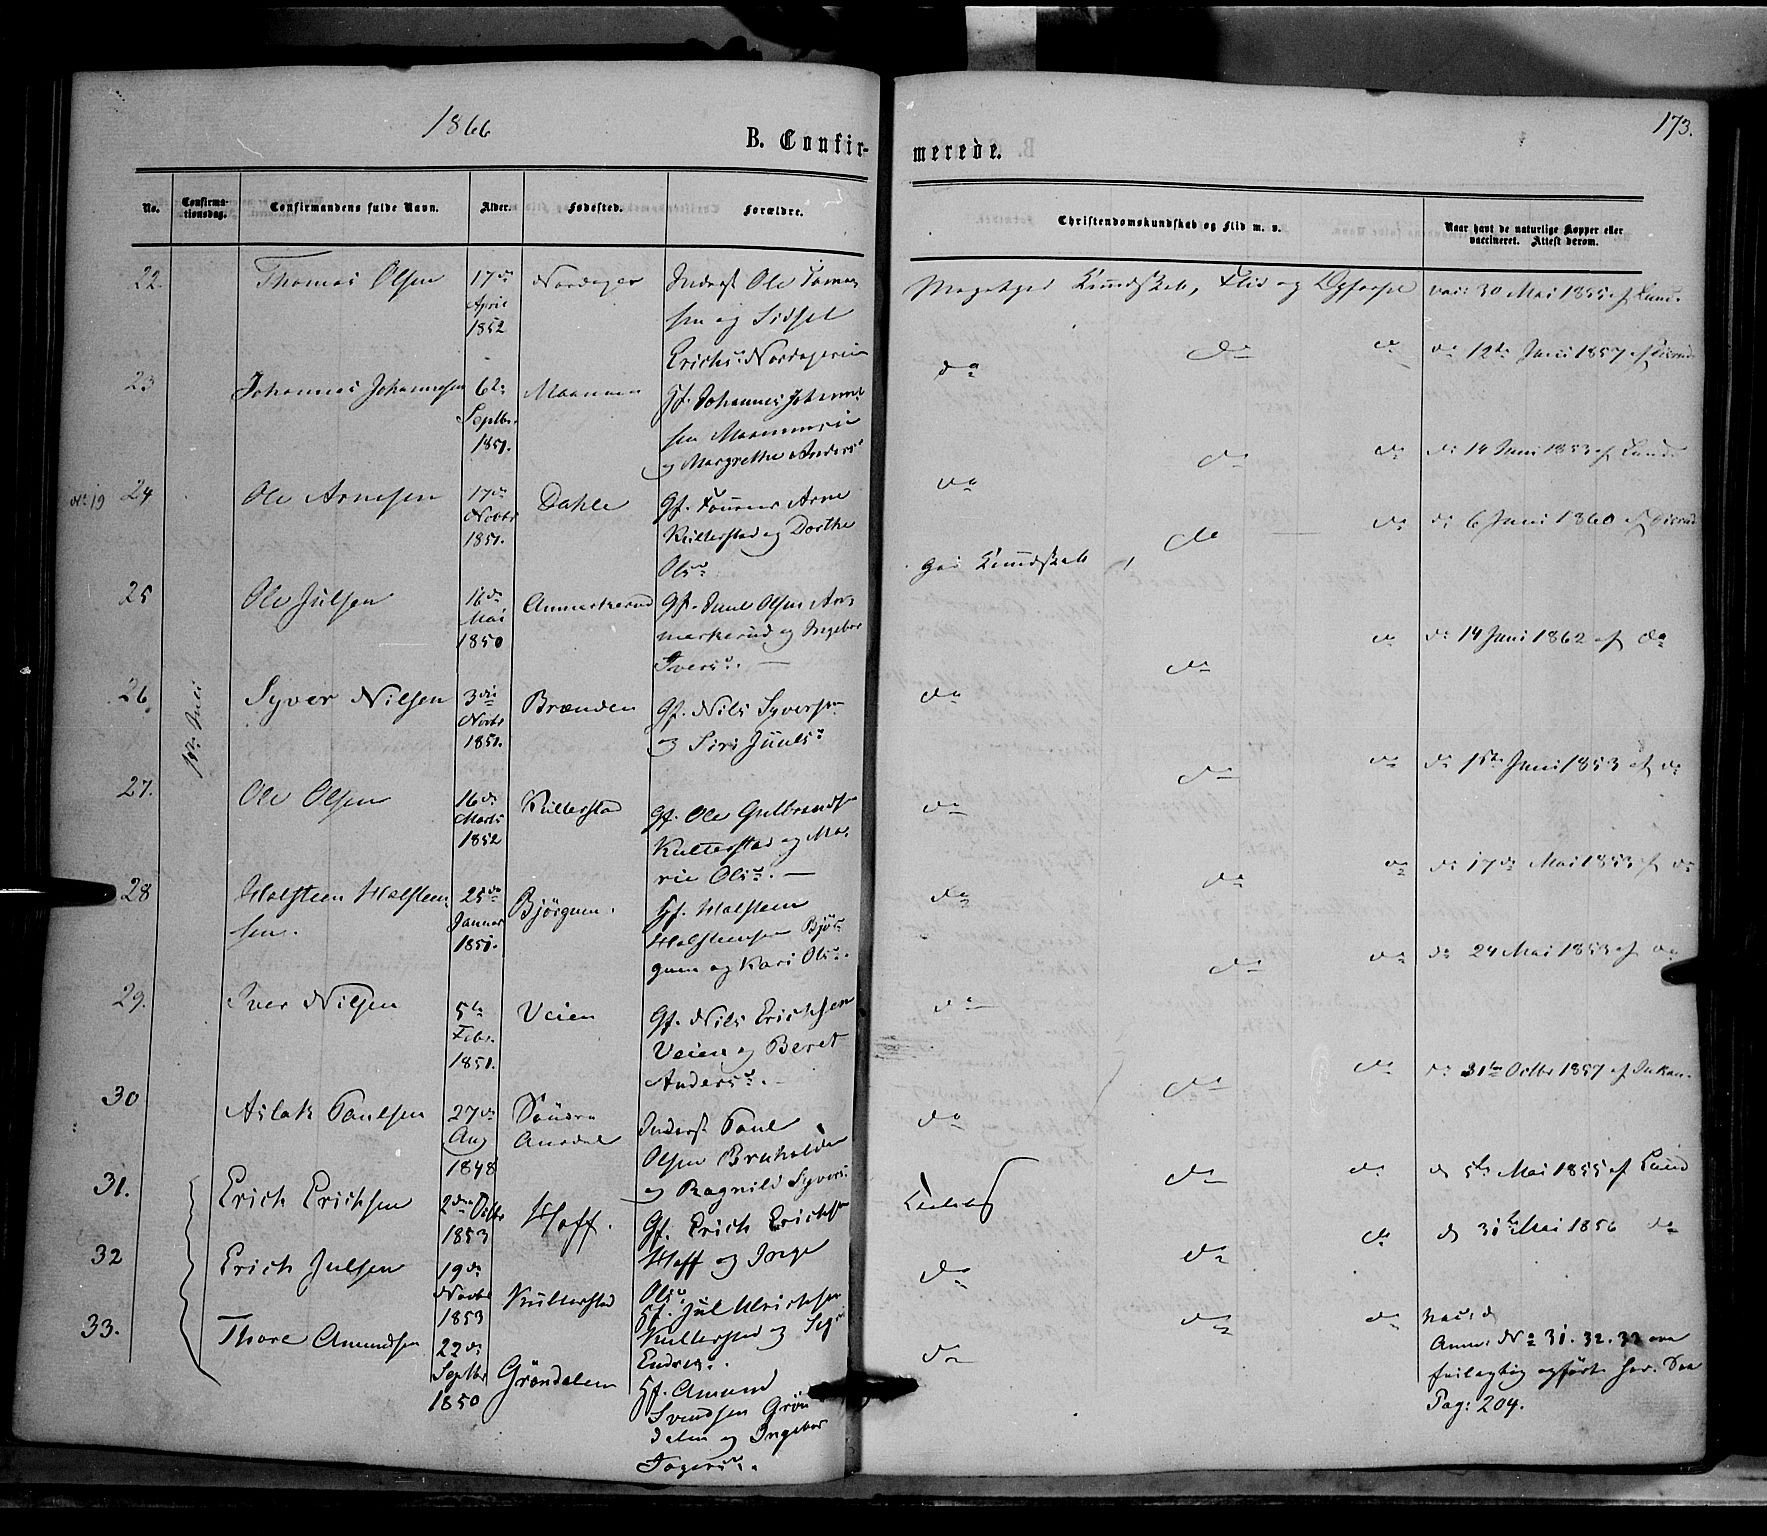 1866
B. Confirmerede.
173.
No.
Confirmationsdag.
Confirmandens fulde Navn.
Alder.
Fødested.
Forældre.
Christendomskundskab og Flid m. v.
Naar havt de naturlige Kopper eller
vaccineret. Attest derom.
22.
Thomas Olsen
17de
April
1852
Nordager
Inderst Ole Tomas
sen og Sidsel
Erichs: Nordagerei
Megetgod Kundskab, Flid og Opførsel
vac: 30 Mai 1855 af Lund
23
Johannes Johannesen
6te
Septbr.
1851.
Gf. Johannes Johanne
sen
og Margrethe Anders
da
do
do
do 12te Juni 1857 af
No 19
24
Ole Arnesen
17de
Novbr
1851.
Dahle
Gf. Arne
Kultterstad og Dorthe
Ols:
do
do
do
do 14 Juni 1853 af Lund
25
Ole Julsen
16de
Mai
1850
Gf. Juul Olsen An
markerud og Ingebor
Ivers:.
God Kundskab,
do
do
do 6 Juni 1860 af
26.
1ste Juli
Syver Nilsen
3die
Novbr
1851.
Brænden
Gf. Nils Syversen
og Siri Juuls:
do
do
do
do 14 Juni 1862 af do
27.
Ole Olsen
16de
Marts
1852
Kultterstad
Gf. Ole Gulbrandsen
Kultterstad og Ma-
rie Ols:.
do
do
do
do 15de Juni 1853 af do
28
Halsteen Halsteen
sen.
25de
Januar
1851.
Bjørgum.
Gf. Halsteen
Halsteensen Bjør
gum og Kari Ols:.
do
do
do
do 17de Mai 1853 af do
29.
Iver Nilsen
5te
Febr.
1851.
Veien
Gf. Nils Erichsen
Veien og Beret
Anders:.
do
do
do
do 24 Mai 1853 af do
30
Aslak Paulsen
27de
Aug
1848
Søndre
Aurdal
Inderst Paul
Olsen
og Ragnild Syvers:
do
do
do
do 31te Octbr 1857 af
31.
Erich Erichsen
2den Octbr
1853
Hoff.
Gf. Erich Erichsen
Hoff og Inge
Ols:
do
do
do 5te Mai 1855 af Lund
32
Erich Julsen
19de
Novbr
1853
Kultterstad
Gf. Jul Ulrichsen
Kultterstad og
Endres:.
do
do
do
do 31te Mai 1856 do
33.
Thore Amundsen
22de
Septbr
1850
Grøndalen
Gf. Amund
Svendsen Grøn
dalen og Ingebor
do
do
do
Anm. No 31. 32. 33 ere
feilagtig opført her. See
Pag: 204.